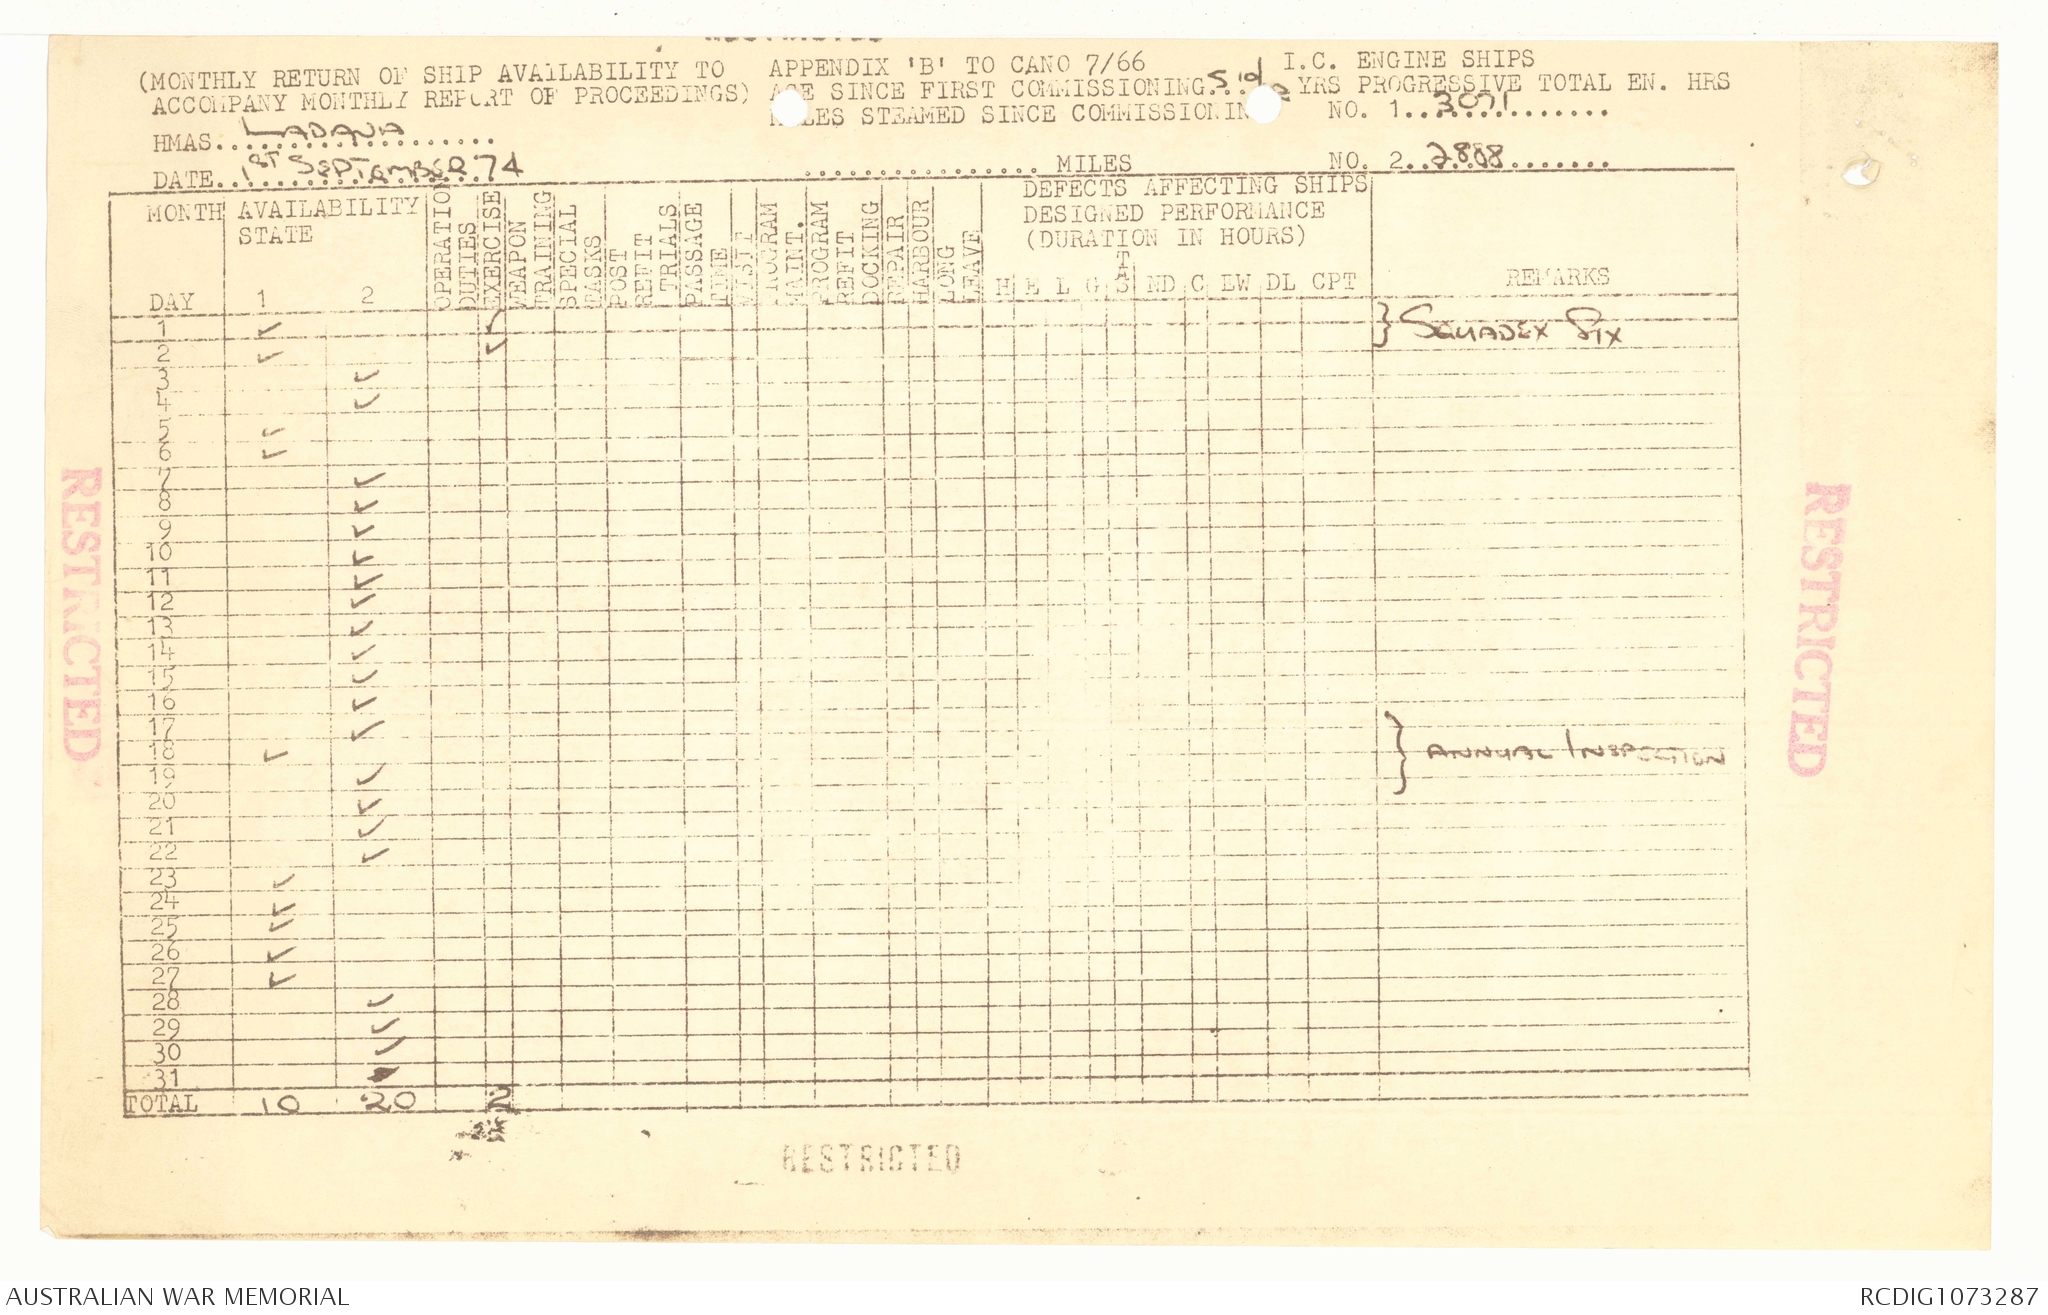 (MONTHLY RETURN OF SHIP AVAILABILITY TO
ACCOMPANY MONTHLY REPORT OF PROCEEDINGS)
HMAS. LADAVA
DATE. 1ST SEPTEMBER 74
APPENDIX 'B' TO CANO 7/66
AGE SINCE FIRST COMMISSIONING YRS
MILES STEAMED SINCE COMMISSIONIN
MILES
I.C. ENGINE SHIPS
PROGRESSIVE TOTAL EN. HRS
NO. 1. 3071
NO. 2.
MONTH
DAY
AVAILABILITY
STATE
1 2
OPERATION
DUTIES
EXERCISE
WEAPON
TRAINING
SPECIAL
TASKS
POST
REFIT
TRIALS
PASSAGE
TIME
VISIT
PROGRAM
MAINT.
PROGRAM
REFIT
DOCKING
REPAIR
HARBOUR
LONG
LEAVE
DEFECTS AFFECTING SHIPS
DESIGNED PERFORMANCE
(DURATION IN HOURS)
H E L G TAS ND C EW DL CPT
REMARKS
1 ✓ ✓
2 ✓ ✓
} SQUADEX SIX
3 ✓
4 ✓
5 ✓
6 ✓
7 ✓
8 ✓
9 ✓
10 ✓
11 ✓
12 ✓
13 ✓
14 ✓
15 ✓
16 ✓
17 ✓
18 ✓ } ANNUAL INSPECTION
19 ✓
20 ✓
21 ✓
22 ✓
23 ✓
24 ✓
25 ✓
26 ✓
27 ✓
28 ✓
29 ✓
30 ✓
31
TOTAL 10 20 2
RESTRICTED
RESTRICTED
RESTRICTED
AUSTRALIAN WAR MEMORIAL
RCDIG1073287